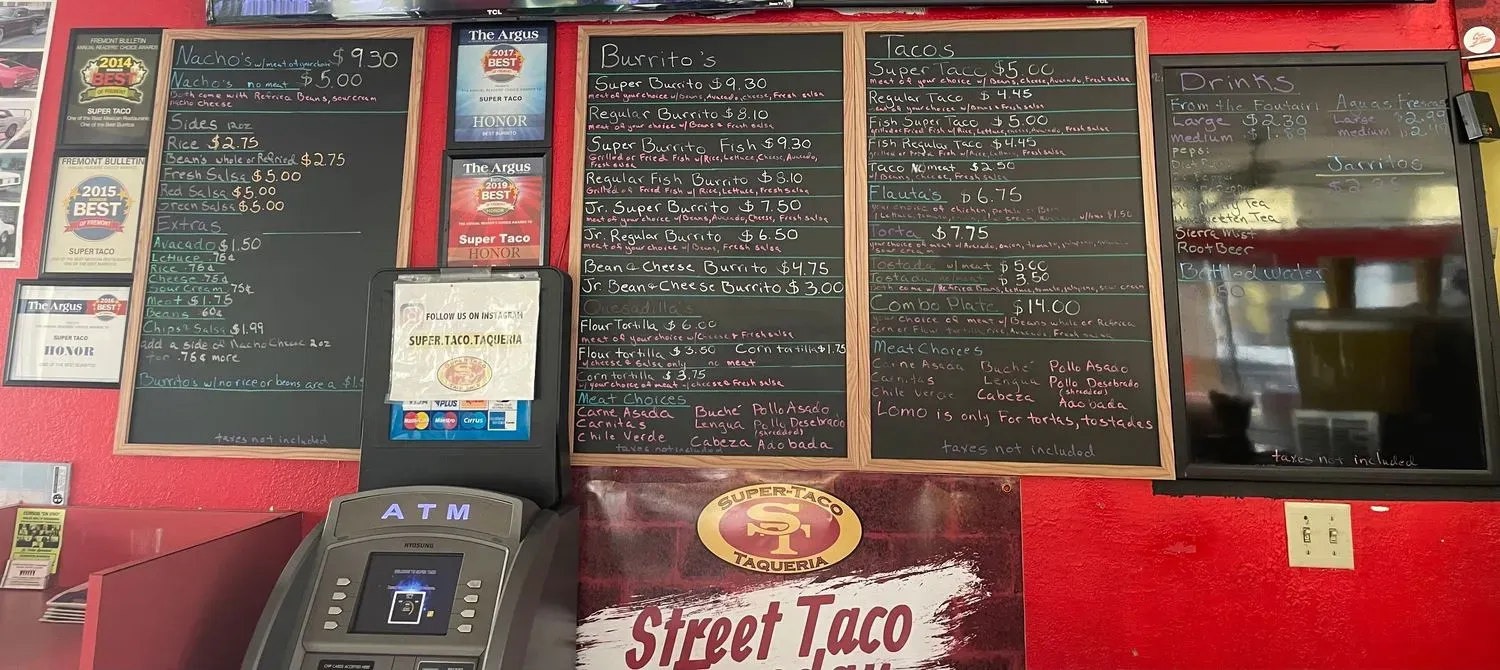 TCL
TCL
FREMONT BULLETIN
ANNUAL READERS' CHOICE AWARDS
2014
BEST
OF FREMONT
SUPER TACO
One of the Best Mexican Restaurants
One of the Best Burritos
FREMONT BULLETIN
2015
BEST
OF FREMONT
SUPER TACO
The Argus
2016
BEST
HONOR
Nacho's w/meat of your choice $9.30
Nacho's no meat $5.00
Both come with Refried Beans, sour cream
nacho cheese
Sides 12oz
Rice $2.75
Beans whole or Refried $2.75
Fresh Salsa $5.00
Red Salsa $5.00
Green Salsa $5.00
Extras
Avacado $1.50
Lettuce .75¢
Rice .75¢
Cheese .75¢
Sour Cream .75¢
Meat $1.75
Beans .60¢
Chips & Salsa $1.99
add a side of Nacho Cheese 2oz
for .75¢ more
Burrito's w/no rice or beans are a
taxes not included
The Argus
2017
BEST
OF FREMONT
SUPER TACO
HONOR
BEST BURRITO
The Argus
2019
BEST
Super Taco
HONOR
FOLLOW US ON INSTAGRAM
SUPER.TACO.TAQUERIA
VISA PLUS
MasterCard Maestro Cirrus
ATM
HYOSUNG
WELCOME TO SUPER TACO
CHIP CARDS ACCEPTED HERE
Burrito's
Super Burrito $9.30
meat of your choice w/Beans, Avacado, Cheese, Fresh salsa
Regular Burrito $8.10
meat of your choice w/Beans & Fresh salsa
Super Burrito Fish $9.30
Grilled or Fried Fish w/Rice, Lettuce, Cheese, Avacado,
Fresh salsa
Regular Fish Burrito $8.10
Grilled or Fried Fish w/Rice, Lettuce, Fresh Salsa
Jr. Super Burrito $7.50
meat of your choice w/Beans, Avacado, Cheese, Fresh salsa
Jr. Regular Burrito $6.50
meat of your choice w/Beans, Fresh Salsa
Bean & Cheese Burrito $4.75
Jr. Bean & Cheese Burrito $3.00
Quesadilla's
Flour Tortilla $6.00
meat of your choice w/Cheese & Fresh salsa
Flour tortilla $3.50 Corn tortilla $1.75
w/cheese & Salsa only no meat
Corn tortilla $3.75
w/your choice of meat w/cheese & Fresh salsa
Meat Choices
Carne Asada Buche Pollo Asado
Carnitas Lengua Pollo Desebrado
(shredded)
Chile Verde Cabeza Adobada
taxes not included
Tacos
Super Taco $5.00
meat of your choice w/Beans, Cheese, Avacado, Fresh salsa
Regular Taco $4.45
meat of your choice w/Beans & Fresh salsa
Fish Super Taco $5.00
Fish w/Rice, Lettuce, Avacado, Fresh Salsa
Fish Regular Taco $4.45
Fish w/Rice, Lettuce, Fresh salsa
Taco No meat $2.50
w/Beans, Cheese, Fresh salsa
Flauta's $6.75
your choice of chicken,
Torta $7.75
your choice of meat w/Avacado, onion, tomato,
sour cream
Tostada w/meat $5.00
Tostada no meat $3.50
both come w/Refried Beans, lettuce, tomato, sour cream
Combo Plate $14.00
your choice of meat w/Beans whole or Refried
corn or Flour tortilla, rice, Avacado, Fresh salsa
Meat Choices
Carne Asada Buche Pollo Asado
Carnitas Lengua Pollo Desebrado
(shredded)
Chile Verde Cabeza Adobada
Lomo is only For tortas, tostadas
taxes not included
Drinks
From the Fountain Aguas Frescas
Large $2.30 Large $2.99
medium $1.89 medium
pepsi
Jarritos
Raspberry Tea
Unsweeten Tea
Sierra Mist
Root Beer
Bottled Water
taxes not included
SUPER-TACO
ST
TAQUERIA
Street Taco